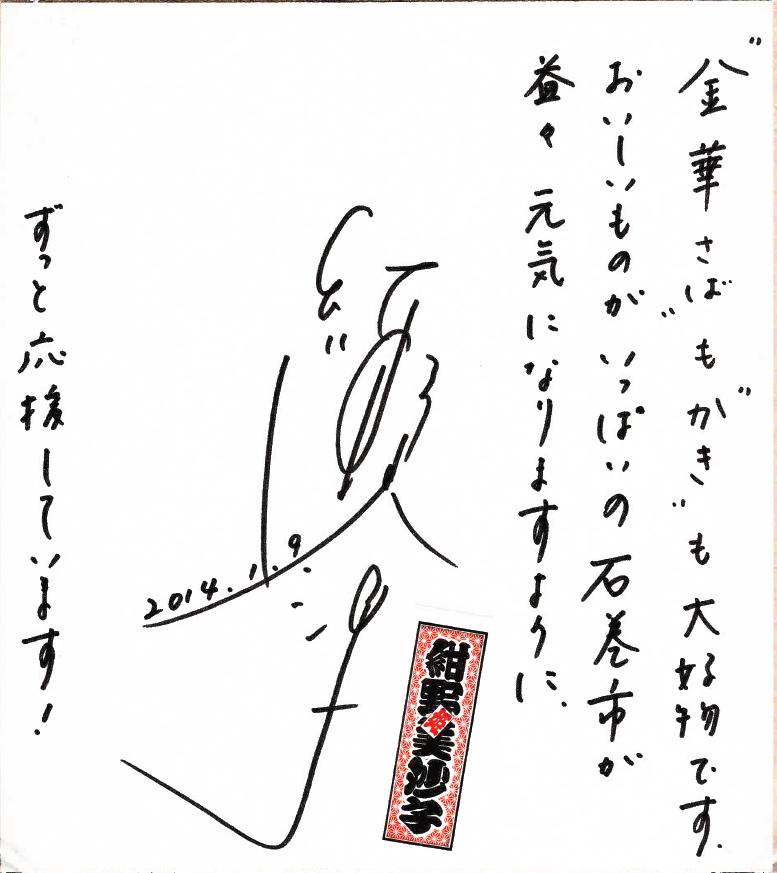 "金華さば"も"がき"も大好物です.
おいしいものがいっぱいの石巻市が
益々元気になりますように.
2014.1.9.
紺野美沙子
ずっと応援しています!